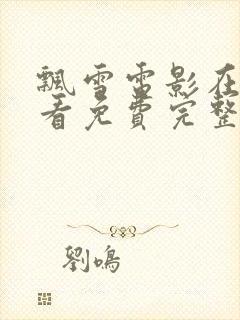 飄雪雷影在
看免費完整
劉鳴